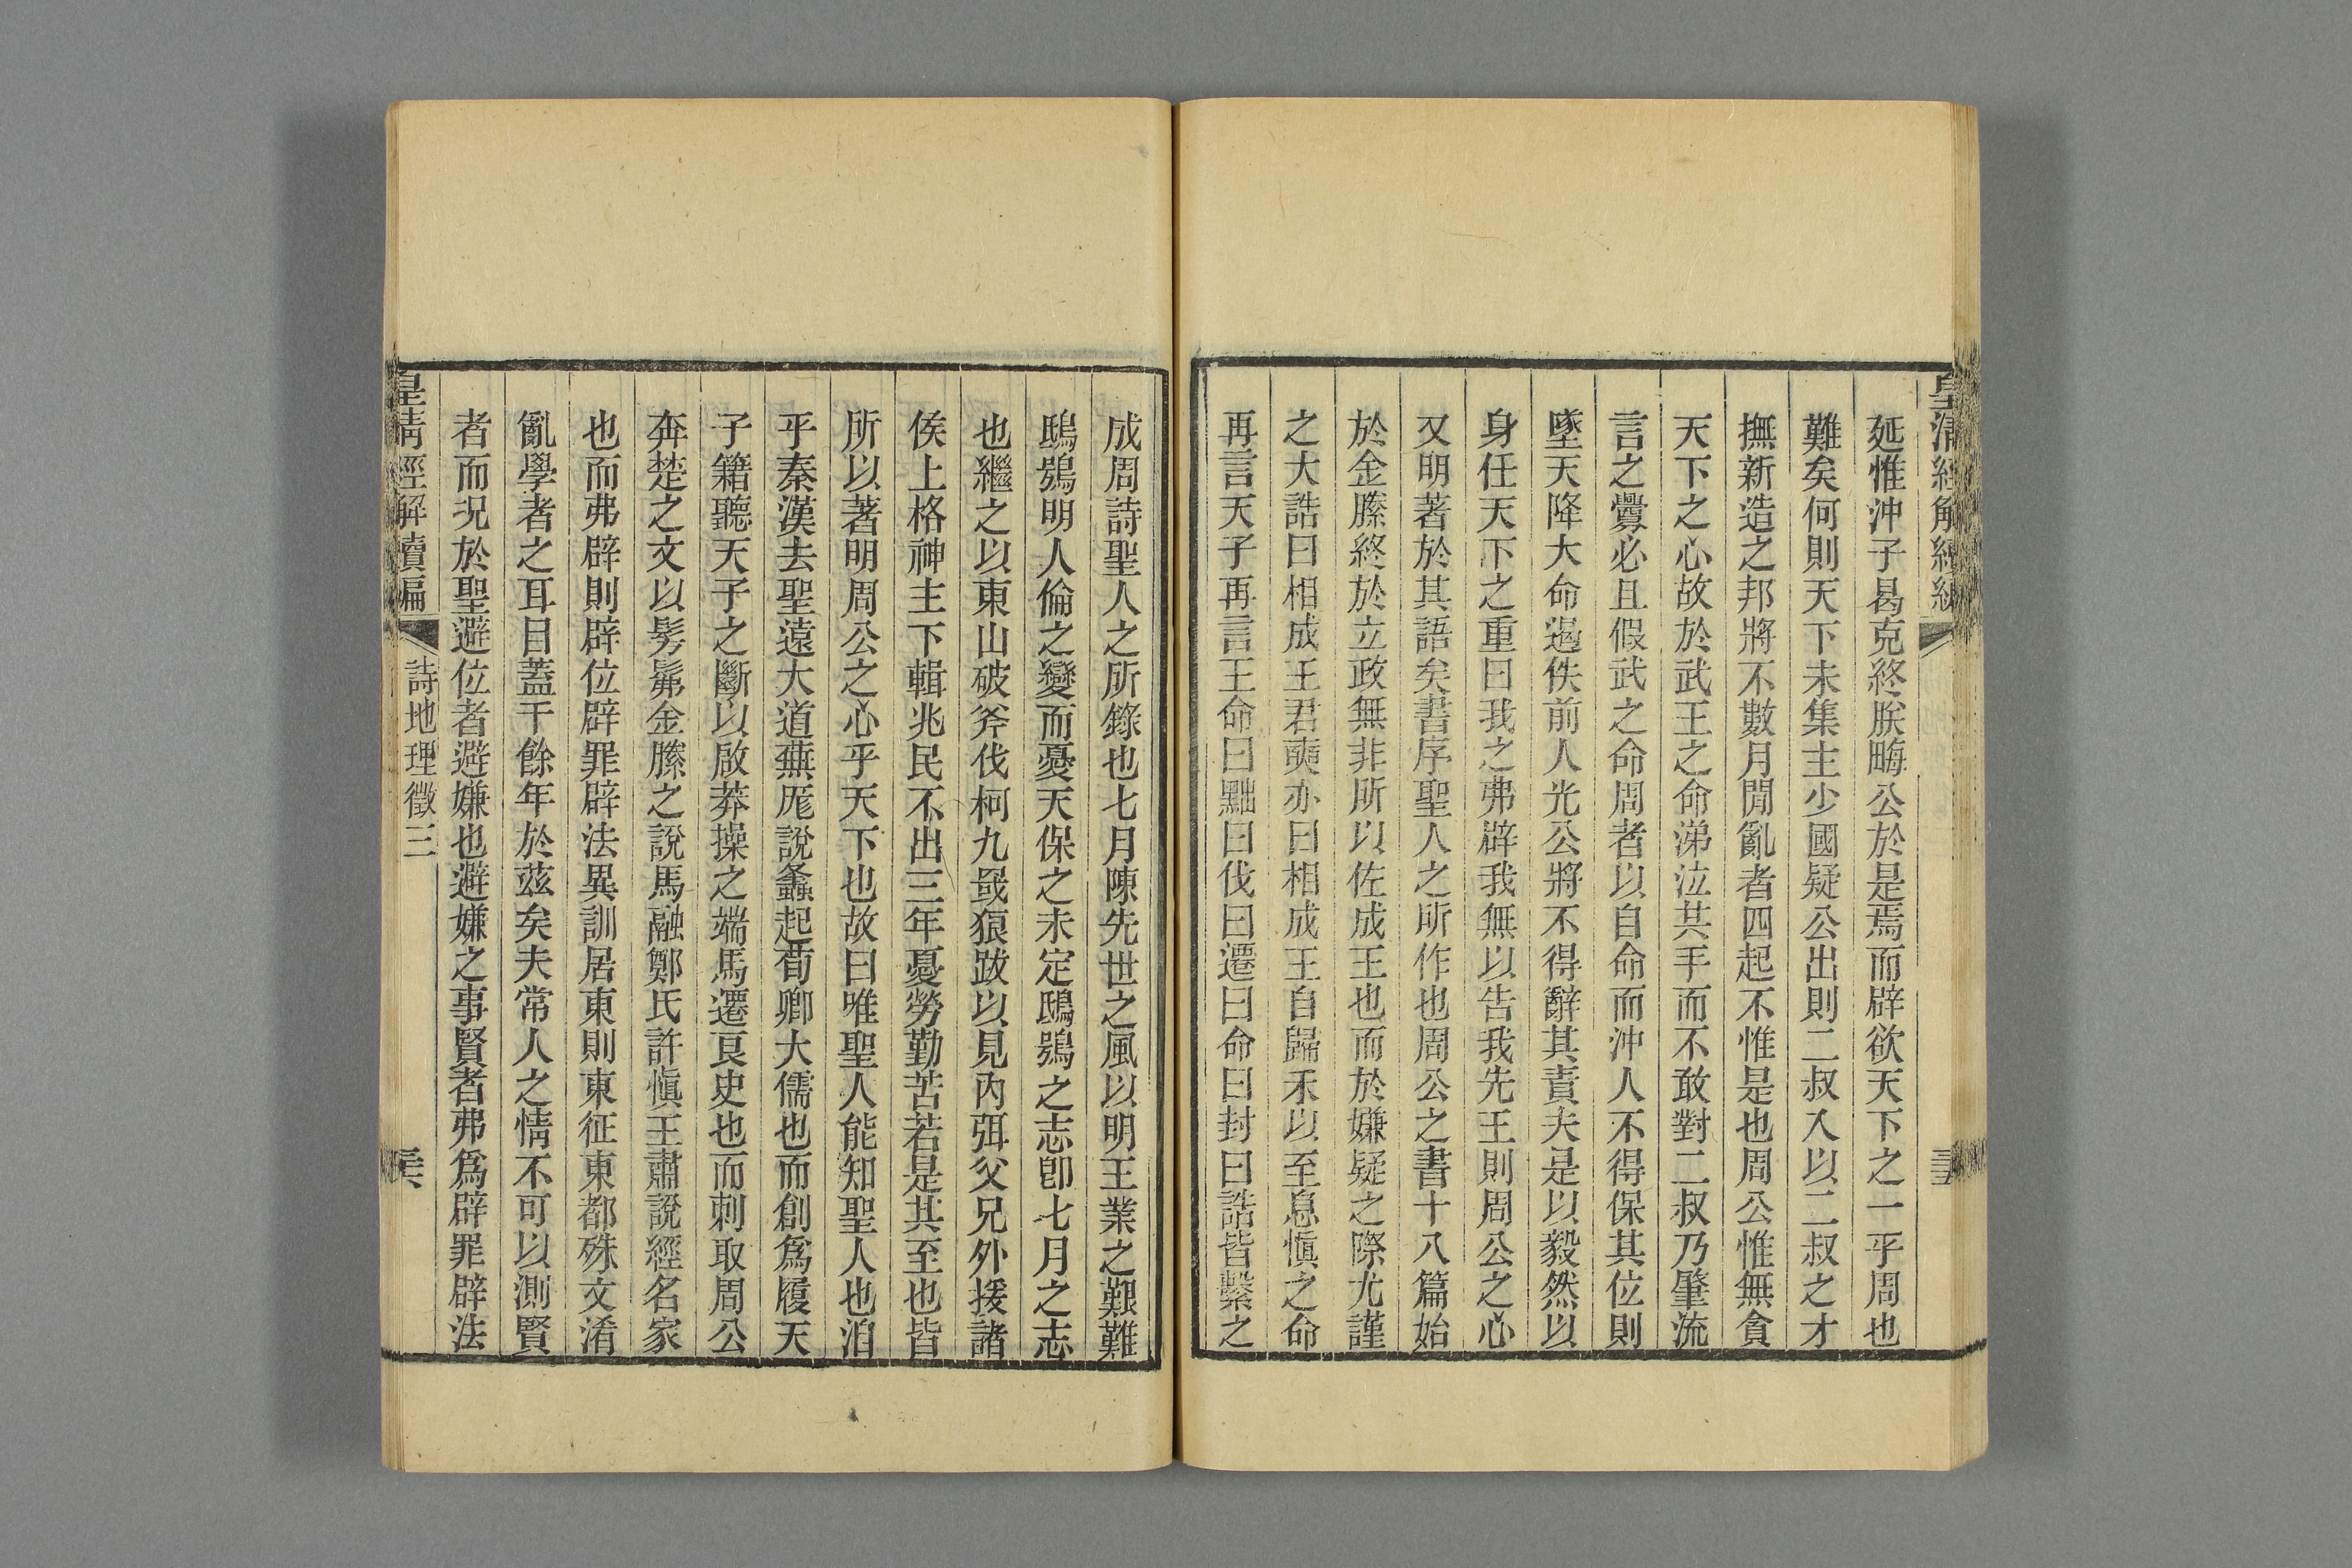 皇清經解續編
延惟沖子曷克終朕畮公於是焉而辟欲天下之一乎周也
難矣何則天下未集主少國疑公出則二叔入以二叔之才
撫新造之邦將不數月閒亂者四起不惟是也周公惟無貪
天下之心故於武王之命涕泣其手而不敢對二叔乃肇流
言之釁必且假武之命周者以自命而沖人不得保其位則
墜天降大命遏佚前人光公將不得辭其責夫是以毅然以
身任天下之重曰我之弗辟我無以告我先王則周公之心
又明著於其語矣書序聖人之所作也周公之書十八篇始
於金縢終於立政無非所以佐成王也而於嫌疑之際尤謹
之大誥曰相成王君奭亦曰相成王自歸禾以至息愼之命
再言天子再言王命曰黜曰伐曰遷曰命曰封曰誥皆繫之
成周詩聖人之所錄也七月陳先世之風以明王業之艱難
鴟鴞明人倫之變而憂天保之未定鴟鴞之志卽七月之志
也繼之以東山破斧伐柯九罭狼跋以見內弭父兄外援諸
侯上格神主下輯兆民不出三年憂勞勤苦若是其至也皆
所以著明周公之心乎天下也故曰唯聖人能知聖人也洎
乎秦漢去聖遠大道蕪厖說蠭起荀卿大儒也而創爲履天
子籍聽天子之斷以啟莽操之端馬遷良史也而刺取周公
奔楚之文以髣髴金縢之說馬融鄭氏許愼王肅說經名家
也而弗辟則辟位辟罪辟法異訓居東則東征東都殊文淆
亂學者之耳目蓋千餘年於茲矣夫常人之情不可以測賢
者而況於聖避位者避嫌也避嫌之事賢者弗爲辟罪辟法
皇清經解續編 詩地理徵三